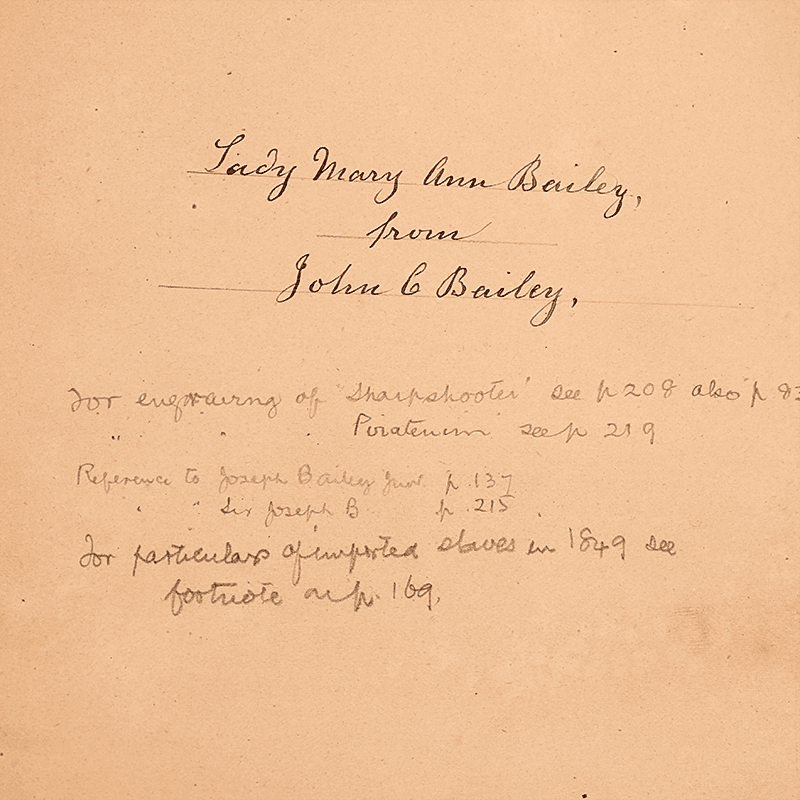 Lady Mary Ann Bailey,
from
John C Bailey,
For engraving of 'Sharpshooter' see p 208 also p 83
" " " see p 219
Reference to Joseph Bailey Junr p. 137
" " Sir Joseph B p. 215
For particulars of imported slaves in 1849 see
footnote on p. 169.